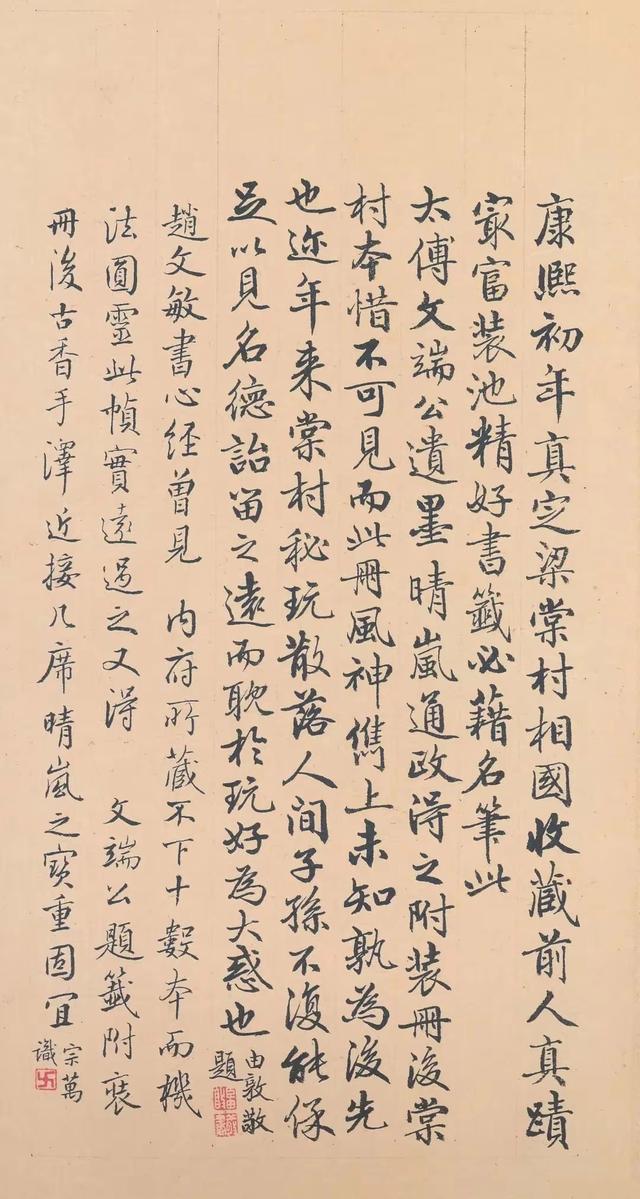 康熙初年真定梁棠村相國收藏前人真蹟
㝡富装池精好書籤必藉名筆此
太傅文端公遺墨晴嵐通政淂之附装冊後棠
村本惜不可見而此冊風神儁上未知孰為後先
也迩年来棠村秘玩散落人间子孫不復能保
足以見名德詒畱之遠而耽於玩好為大惑也
由敦敬
題
趙文敏書心经曾見 内府所藏不下十數本而機
法圓靈此幀實遠過之又淂 文端公題籤附裒
冊後古香手澤近接几席晴嵐之寶重固宜
宗萬
識